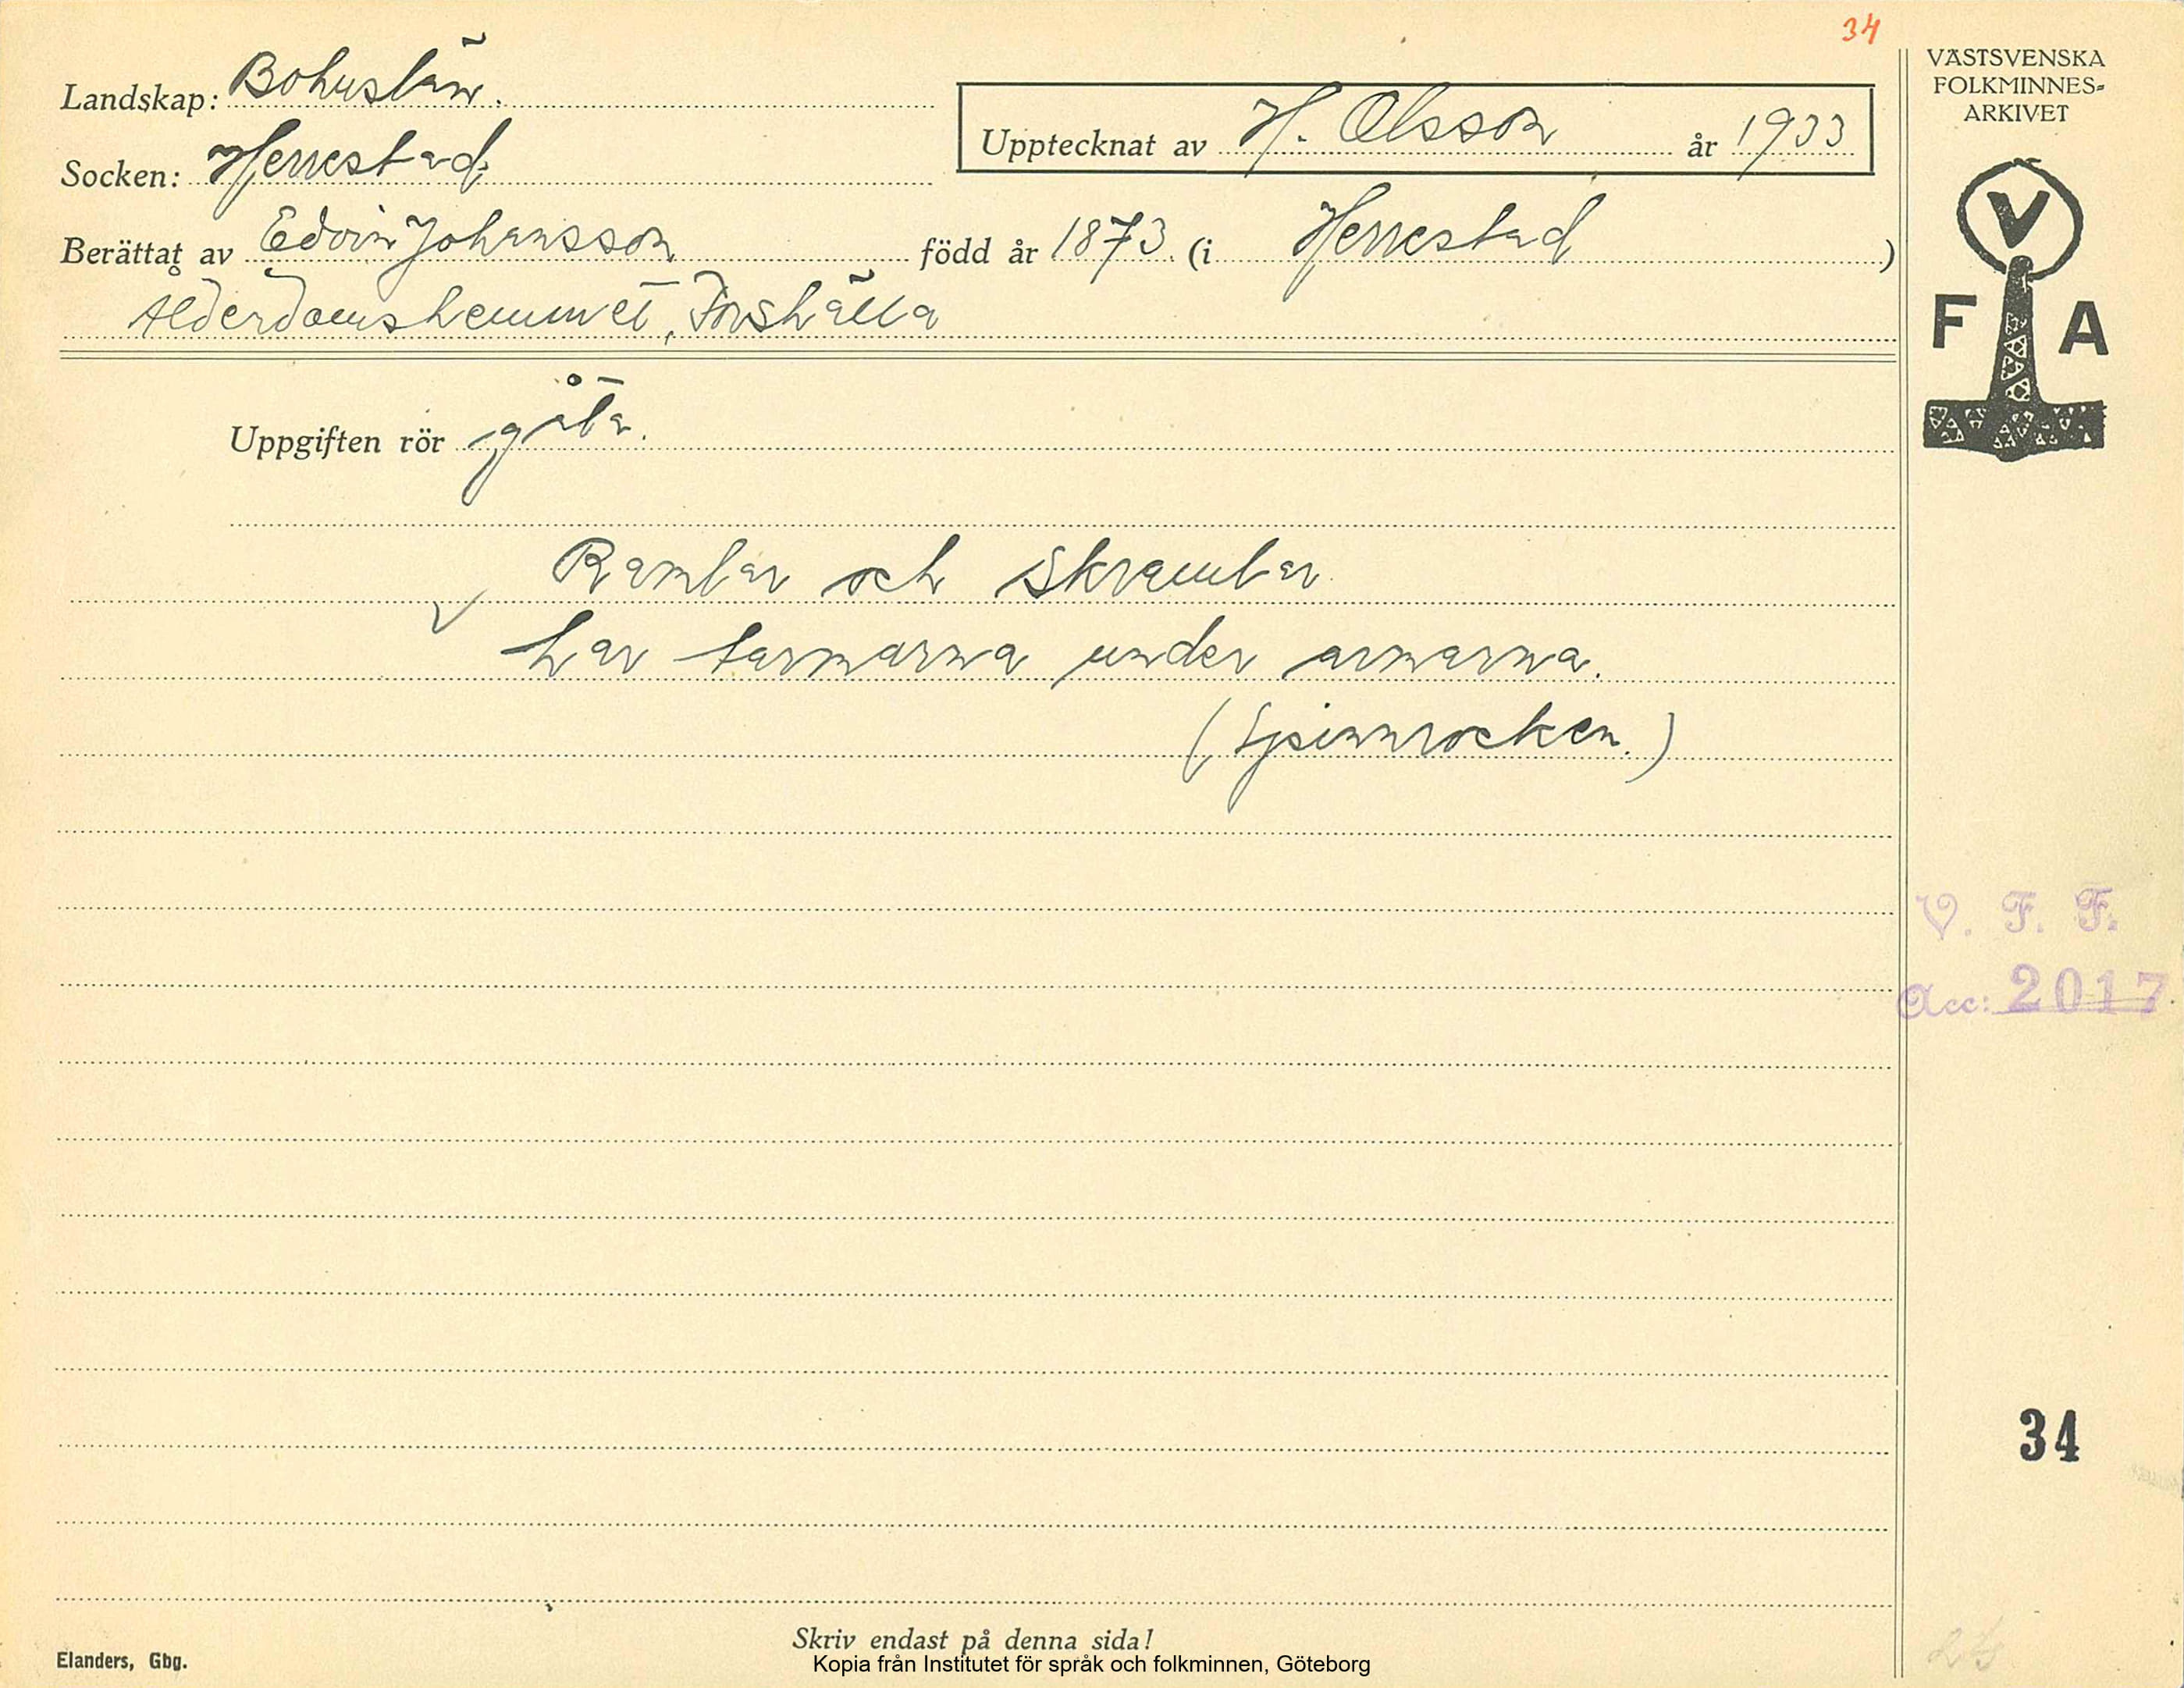 34
Landskap: Bohuslän.
Socken: Herrestad.
Upptecknat av H. Olsson år 1933
Berättat av Edvin Johansson född år 1873. (i Herrestad)
Ålderdomshemmet, Forshälla
VÄSTSVENSKA
FOLKMINNES-
ARKIVET
V
F A
Uppgiften rör gåta.
Ramlar och skramlar
har tarmarna under armarna.
(Spinnrocken.)
V. F. F.
Acc: 2017.
34
Skriv endast på denna sida!
Elanders, Gbg.
Kopia från Institutet för språk och folkminnen, Göteborg